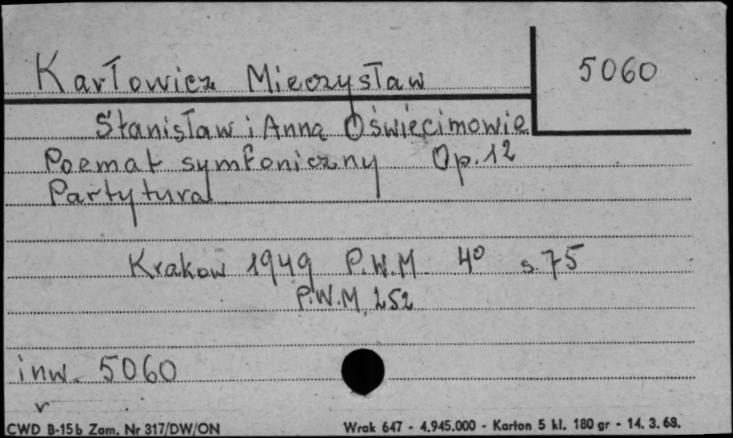 Karłowicz Mieczysław
5060
Stanisław i Anna Oświęcimowie
Poemat symfoniczny Op. 12
Partytura
Krakow 1949 P.W.M. 4° s. 75
P.W.M. 252
inw. 5060
v
CWD B-15b Zam. Nr 317/DW/ON
Wrak 647 - 4.945.000 - Karton 5 kl. 180 gr - 14. 3. 68.